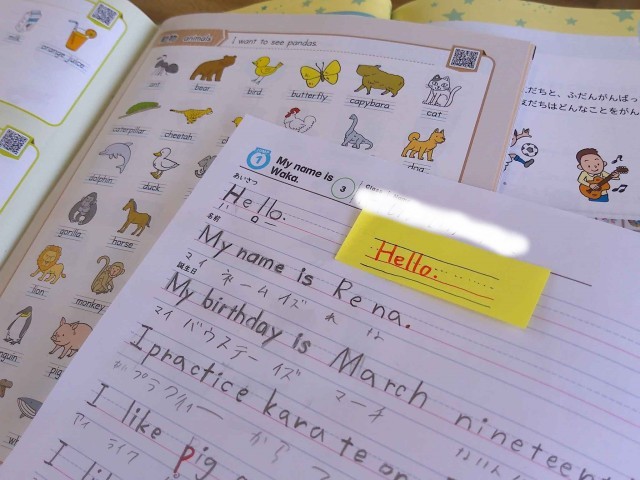 milk
orange juice
動物 animals
I want to see pandas.
ant
bear
bird
butterfly
capybara
cat
caterpillar
cheetah
dog
dolphin
duck
gorilla
horse
lion
monkey
penguin
pig
だちと、ふだんがんばっ
友だちはどんなことをがん
1
My name is Waka.
3
あいさつ
Hello.
Hello.
名前
My name is Rena.
マイ ネームイズ れ な
誕生日
My birthday is March nineteent
マイ バウステー イズ マーチ
I practice karate on
プラクティー から
I like pig
アイ ライク
I lik